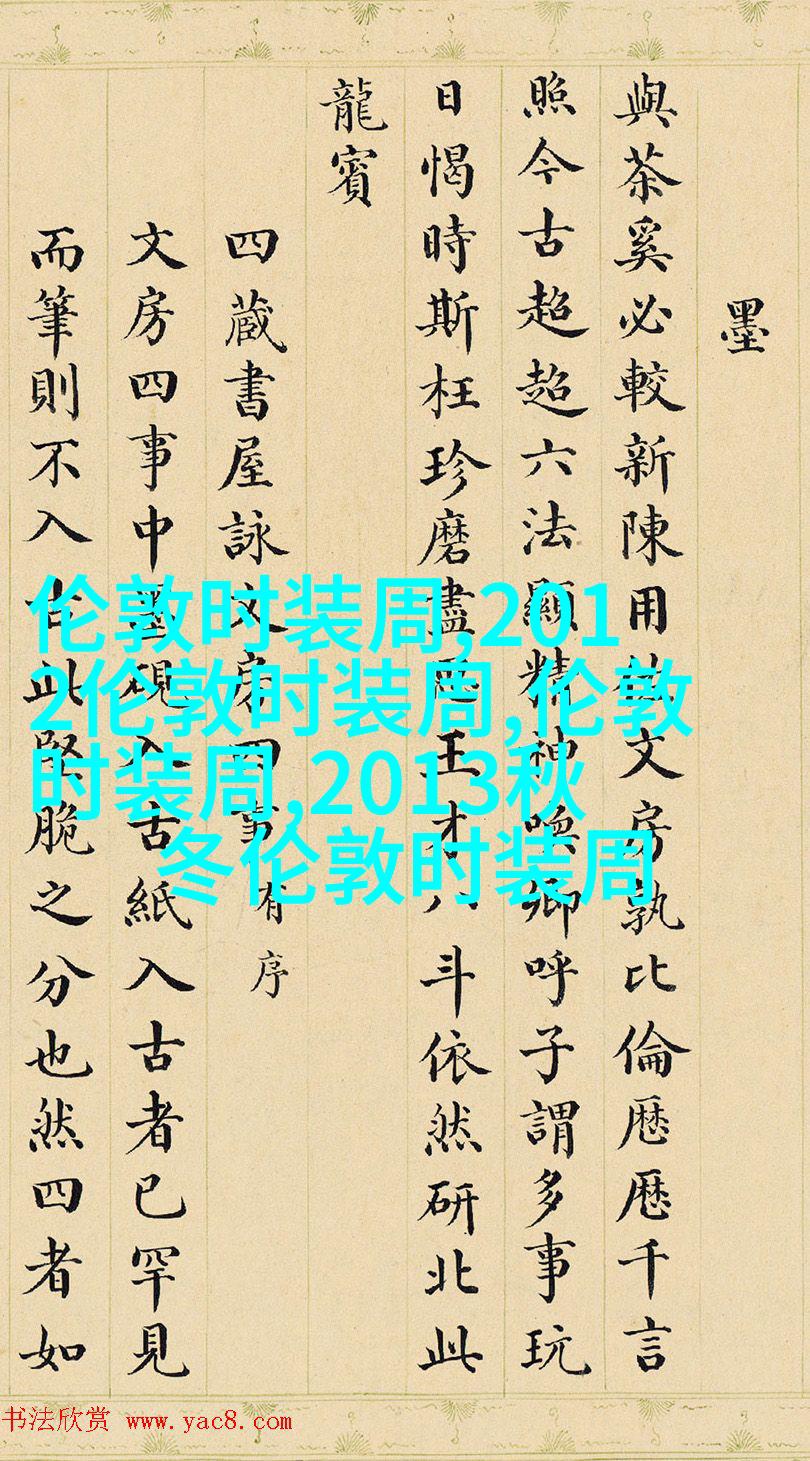 墨
與茶奚必較新陳用文房孰比倫厯厯千言
照今古超超六法顯精神喚卿呼子謂多事玩
日愒時斯枉珍磨盡王才八斗依然研北此
龍賓
四蔵書屋詠文房四事有序
文房四事中墨硯入古紙入古者已罕見
而筆則不入古此堅脆之分也然四者如
伦敦时装周,201
2伦敦时装周,伦敦
时装周,2013秋
冬伦敦时装周
书法欣赏 www.yac8.com